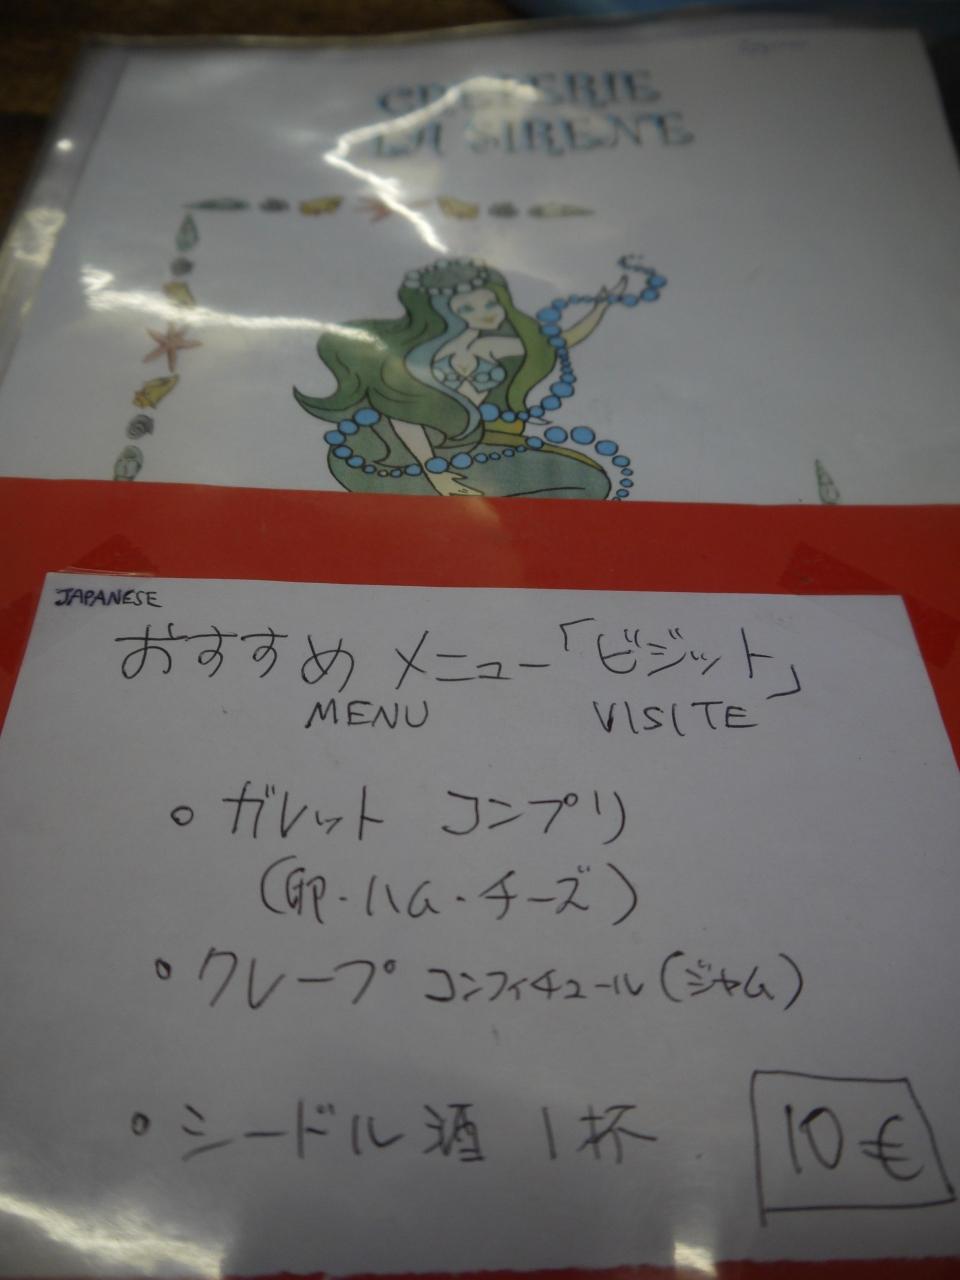 CREPERIE
LA SIRENE
JAPANESE
おすすめ メニュー「ビジット」
MENU VISITE
。ガレット コンプリ
(卵・ハム・チーズ)
。クレープ コンフィチュール(ジャム)
。シードル酒 1杯 10€